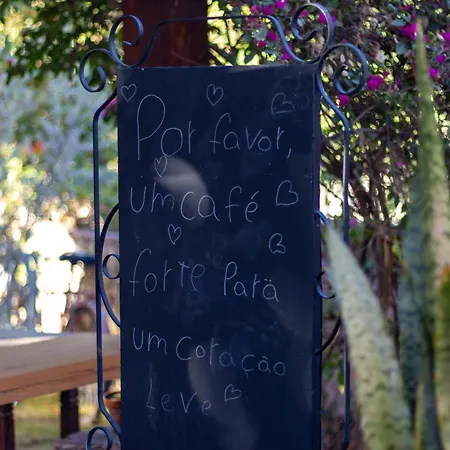 Por favor,
um café
forte para
um coração
leve